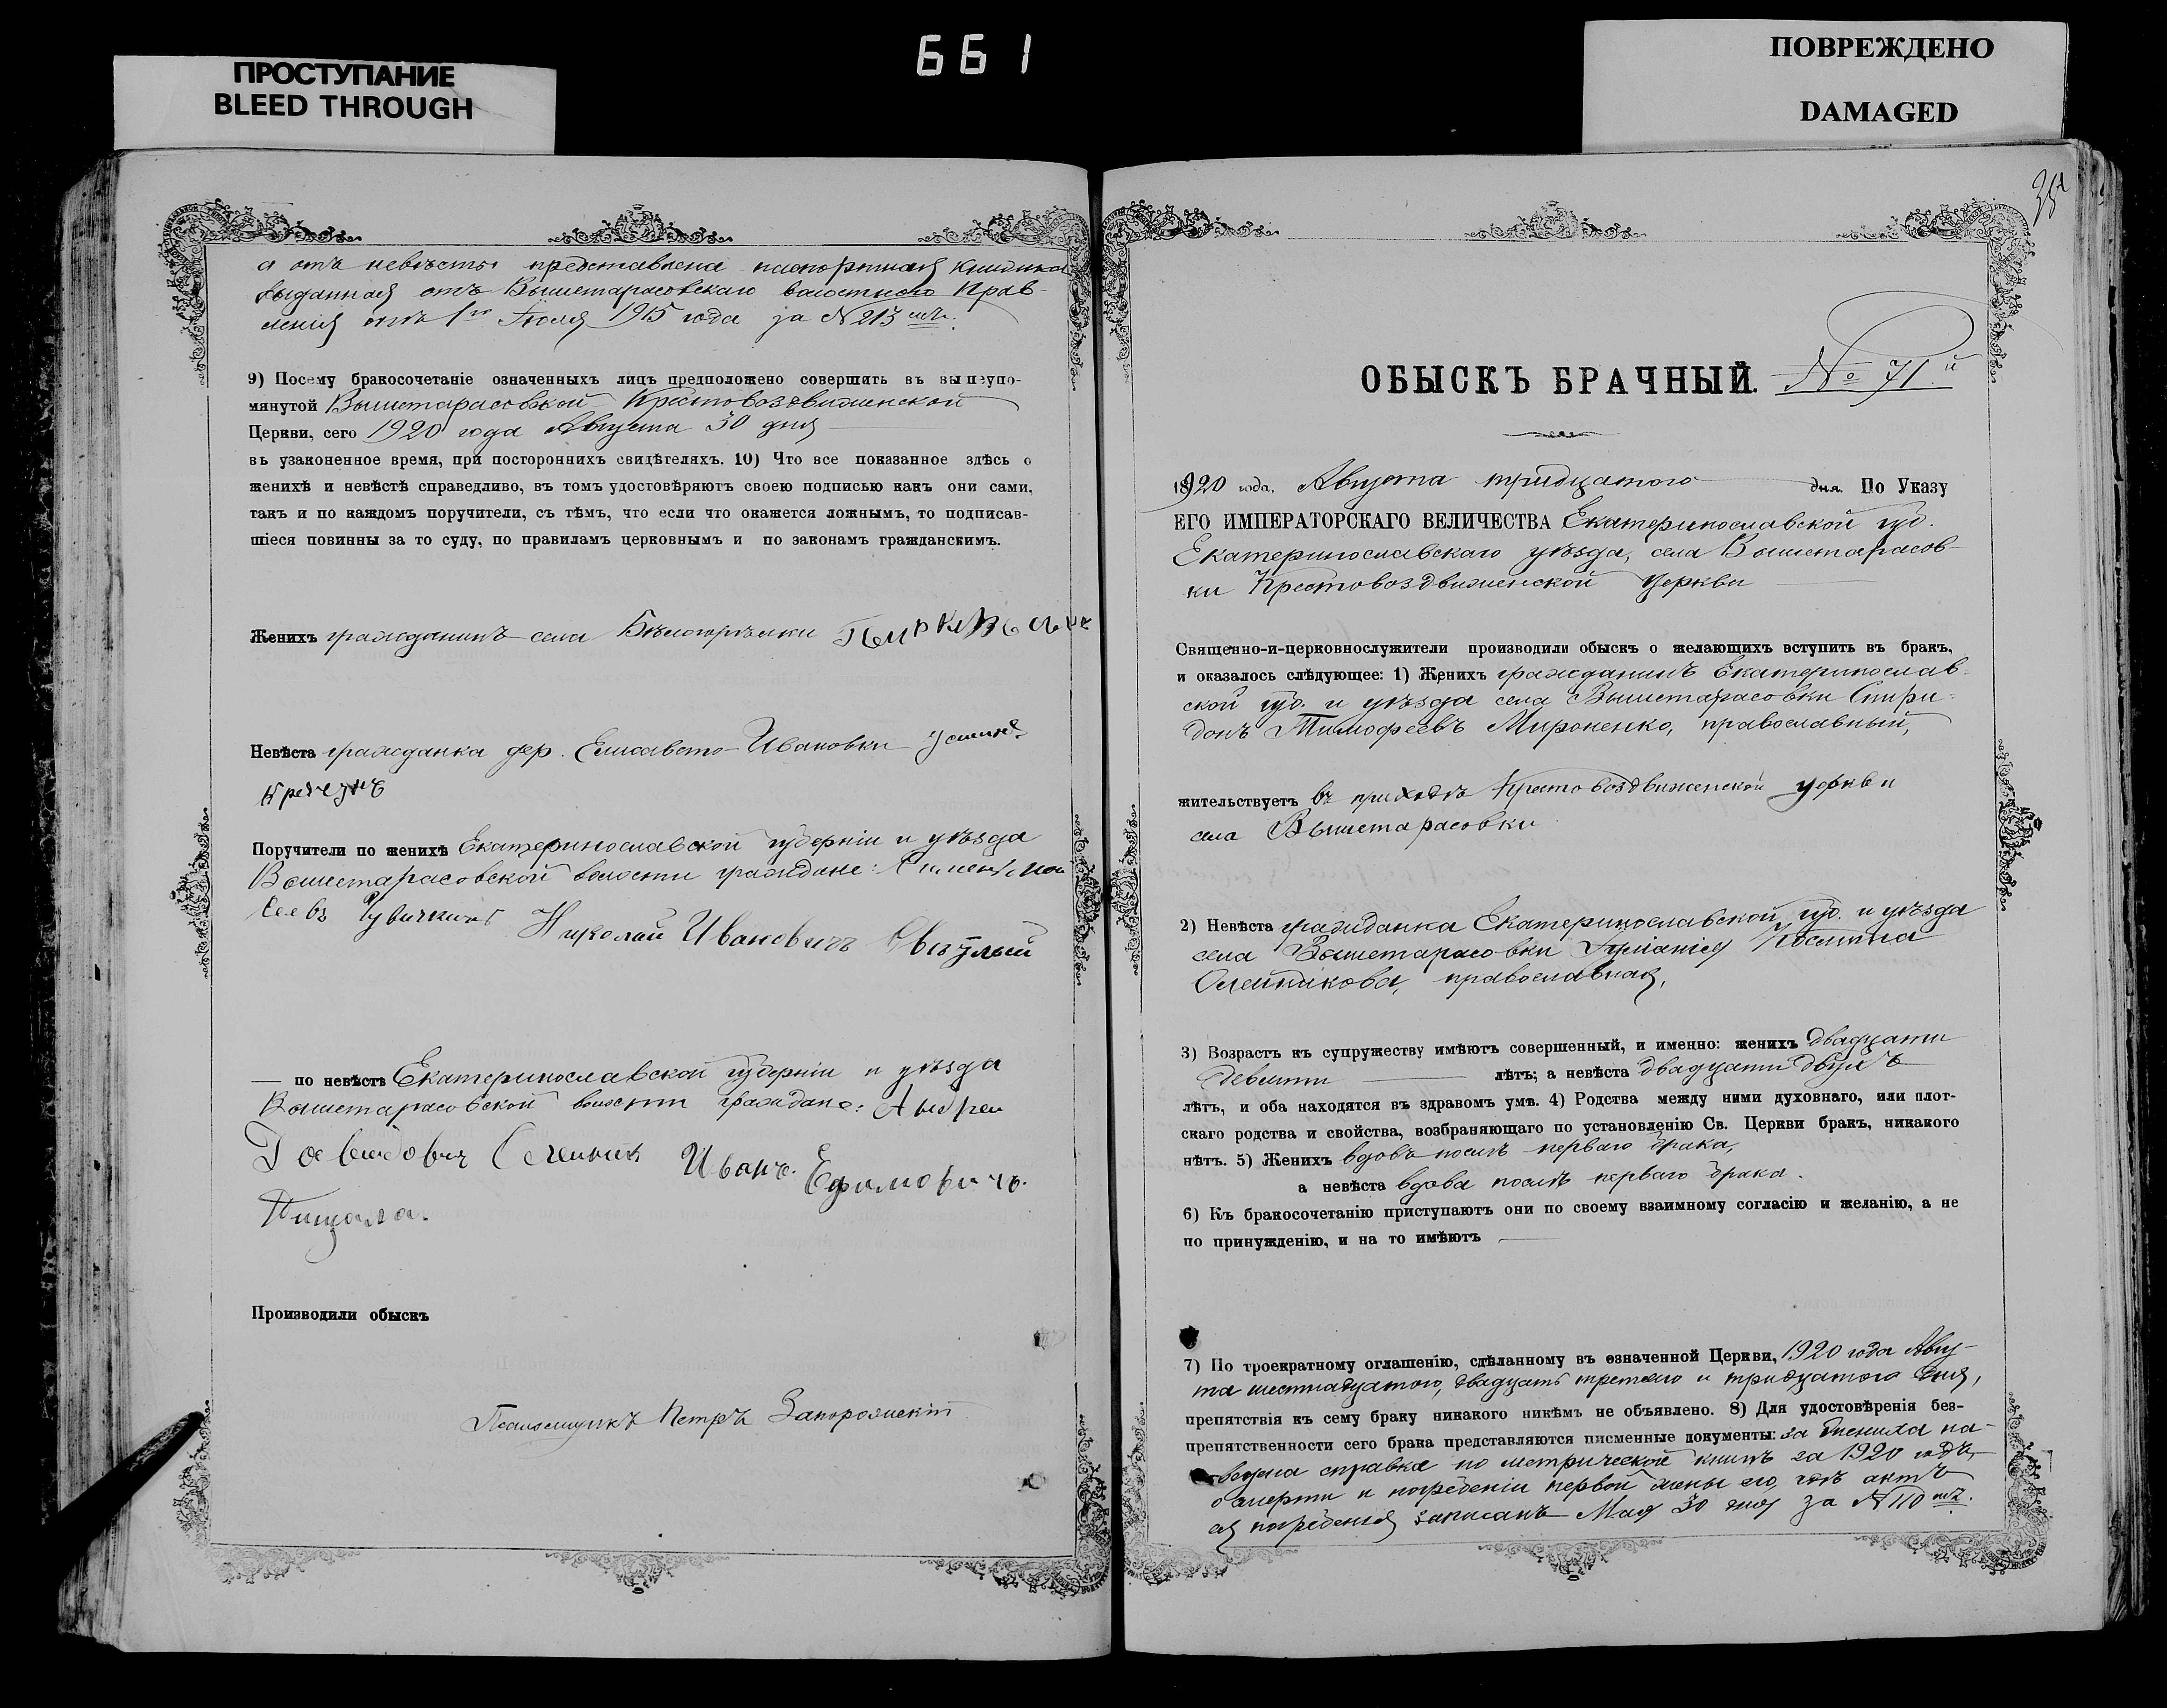 ПРОСТУПАНИЕ
BLEED THROUGH
661
ПОВРЕЖДЕНО
DAMAGED
а отъ невѣсты представлена паспортная книжка
выданная отъ Вышетарасовскаго волостного Прав-
ленія отъ 1го Іюля 1915 года за №213мъ.
9) Посему бракосочетаніе означенныхъ лицъ предположено совершить въ вышеупо-
мянутой Вышетарасовской Крестовоздвиженской
Церкви, сего 1920 года Августа 30 дня
въ узаконенное время, при постороннихъ свидѣтеляхъ. 10) Что все показанное здѣсь о
женихѣ и невѣстѣ справедливо, въ томъ удостовѣряютъ своею подписью какъ они сами,
такъ и по каждомъ поручители, съ тѣмъ, что если что окажется ложнымъ, то подписав-
шіеся повинны за то суду, по правиламъ церковнымъ и по законамъ гражданскимъ.
Женихъ гражданинъ села Бѣлогорѣлки
Невѣста гражданка дер. Елисавето-Ивановки
Поручители по женихѣ Екатеринославской губерніи и уѣзда
Вышетарасовской волости граждане:
Николай Ивановичъ
— по невѣстѣ Екатеринославской губерніи и уѣзда
Вышетарасовской волости граждане: Андрей
Давидовичъ Иванъ. Ефимовичъ.
Пищала.
Производили обыскъ
Псаломщикъ Петръ Запорожскій
ОБЫСКЪ БРАЧНЫЙ. № 71й
1920 года, Августа тридцатого дня. По Указу
ЕГО ИМПЕРАТОРСКАГО ВЕЛИЧЕСТВА Екатеринославской губ.
Екатеринославскаго уѣзда, села Вышетарасов-
ки Крестовоздвиженской церкви
Священно-и-церковнослужители производили обыскъ о желающихъ вступить въ бракъ,
и оказалось слѣдующее: 1) Женихъ гражданинъ Екатеринослав-
ской губ. и уѣзда села Вышетарасовки Спири-
донъ Тимофеевъ Мироненко, православный,
жительствуетъ въ приходѣ Крестовоздвиженской церкви
села Вышетарасовки
2) Невѣста гражданка Екатеринославской губ. и уѣзда
села Вышетарасовки Іуліанія Косьмина
Олейникова, православная,
3) Возрастъ къ супружеству имѣютъ совершенный, и именно: женихъ двадцати
девяти лѣтъ; а невѣста двадцати двухъ
лѣтъ, и оба находятся въ здравомъ умѣ. 4) Родства между ними духовнаго, или плот-
скаго родства и свойства, возбраняющаго по установленію Св. Церкви бракъ, никакого
нѣтъ. 5) Женихъ вдовъ послѣ перваго брака,
а невѣста вдова послѣ перваго брака.
6) Къ бракосочетанію приступаютъ они по своему взаимному согласію и желанію, а не
по принужденію, и на то имѣютъ
7) По троекратному оглашенію, сдѣланному въ означенной Церкви, 1920 года Авгу-
та шестнадцатого, двадцать третяго и тридцатого дня,
препятствія къ сему браку никакого никѣмъ не объявлено. 8) Для удостовѣренія без-
препятственности сего брака представляются писменные документы: за Жениха на-
ведена справка по метрической книгѣ за 1920 годъ,
о смерти и погребеніи первой жены его, гдѣ актъ
ея погребенія записанъ Мая 30 дня за №110мъ.